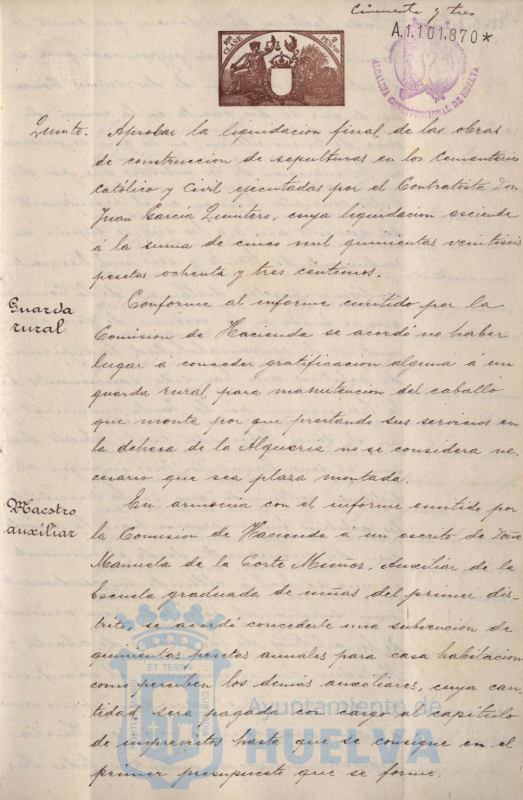 Cincuenta y tres
A.1.101.870*
10ª CLASE
2 PESETAS
ALCALDIA CONSTITUCIONAL DE HUELVA
Quinto. Aprobar la liquidacion final de las obras
de construccion de sepulturas en los Cementerios
Católico y Civil ejecutadas por el Contratista Don
Juan Garcia Quintero, cuya liquidacion asciende
á la suma de cinco mil quinientas veintiseis
pesetas ochenta y tres centimos.
Guarda
rural
Conforme al informe emitido por la
Comision de Hacienda se acordó no haber
lugar á conceder gratificacion alguna á un
guarda rural para manutencion del caballo
que monta por que prestando sus servicios en
la dehesa de la Alqueria no se considera ne-
cesario que sea plaza montada.
Maestro
auxiliar
En armonia con el informe emitido por
la Comision de Hacienda á un escrito de Doña
Manuela de la Corte Muñoz, Auxiliar de la
Escuela graduada de niñas del primer dis-
trito, se acordó concederle una subvencion de
quinientas pesetas anuales para casa habitacion
como perciben los demás auxiliares, cuya can-
tidad será pagada con cargo al capitulo
de imprevistos hasta que se consigne en el
primer presupuesto que se forme.
Ayuntamiento de
HUELVA